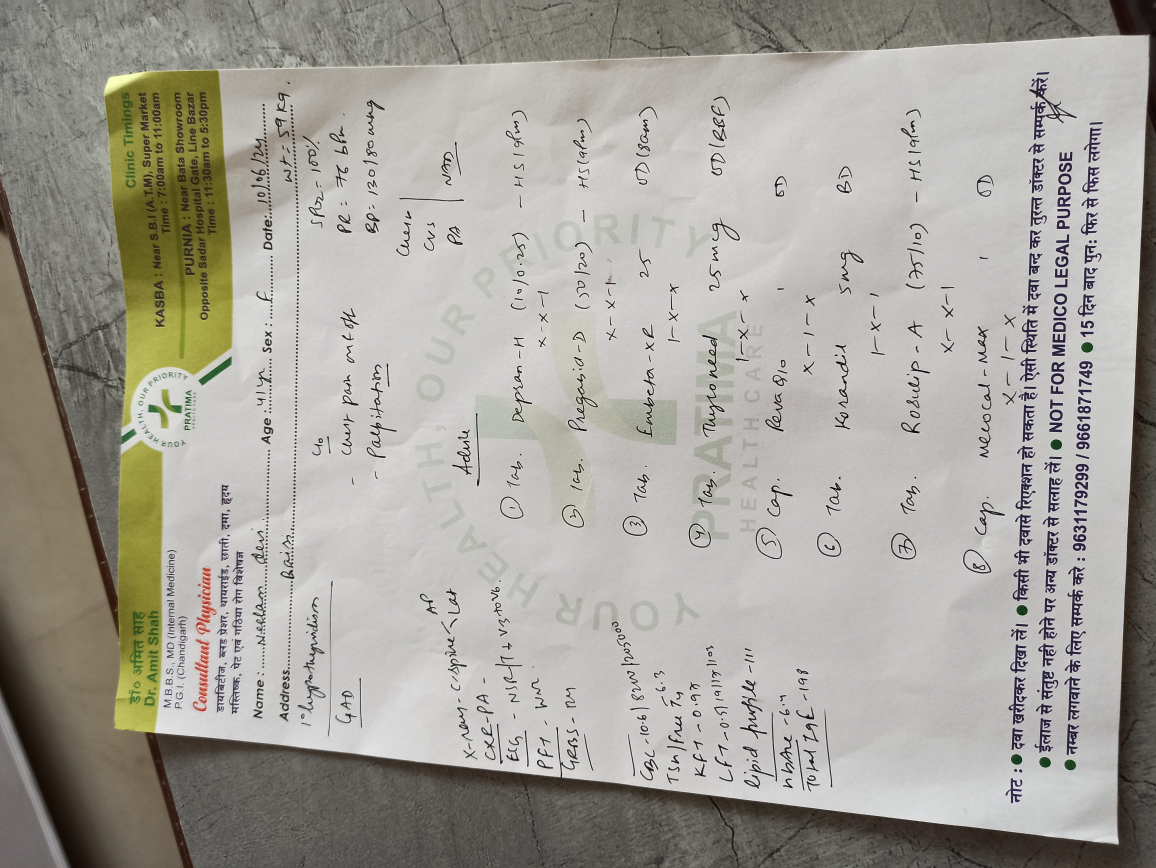 डॉ० अमित साह
Dr. Amit Shah
M.B.B.S., MD (Internal Medicine)
P.G.I. (Chandigarh)
Consultant Physician
डायबिटीज, ब्लड प्रेशर, थायराईड, छाती, दमा, हृदय
मस्तिष्क, पेट एवं गठिया रोग विशेषज्ञ
YOUR HEALTH, OUR PRIORITY
PRATIMA
Clinic Timings
KASBA : Near S.B.I (A.T.M), Super Market
Time : 7:00am to 11:00am
PURNIA : Near Bata Showroom
Opposite Sadar Hospital Gate, Line Bazar
Time : 11:30am to 5:30pm
Name : Neelam Devi Age : 41 yr Sex : F Date: 10/06/24
Address
Wt = 59 Kg
1° hypothyroidism
GAD
C/o
- Chest pain on & off
- Palpitation
SPO2 = 100%
PR = 76 bPm
BP = 130/80 mmHg
Chest
CVS
PA
NAD
X-ray - C-spine AP Lat
CXR-PA -
ECG - NSR/T↓ V3 to V6.
PFT - WNL
CBC - 10.6/8200/205000
TSH/Free T4 - 6.3
KFT - 0.97
LFT - 0.5/19/17/103
lipid profile - 111
HbA1c - 6.4
Total IgE - 198
Advise
① Tab. Depran-H (10/0.25) - HS (9Pm)
x-x-1
② Tab. Pregabid-D (50/20) - HS (9Pm)
x-x-1
③ Tab. Embeta-XR 25 OD (8am)
1-x-x
④ Tab. Thyroneed 25mcg OD (BBF)
1-x-x
⑤ Cap. Reva Q10 1 OD
x-1-x
⑥ Tab. Korandil 5mg BD
1-x-1
⑦ Tab. Rosulip-A (75/10) - HS (9Pm)
x-x-1
⑧ Cap. Merocal-Max 1 OD
x-1-x
YOUR HEALTH, OUR PRIORITY
PRATIMA
HEALTH CARE
नोट : ● दवा खरीदकर दिखा लें। ● किसी भी दवासे रिएक्शन हो सकता है। ऐसी स्थिति में दवा बन्द कर तुरन्त डॉक्टर से सम्पर्क करें।
● ईलाज से संतुष्ट नहीं होने पर अन्य डॉक्टर से सलाह लें। ● NOT FOR MEDICO LEGAL PURPOSE
● नम्बर लगवाने के लिए सम्पर्क करे : 9631179299 / 9661871749 ● 15 दिन बाद पुनः फिर से फिस लगेगा।